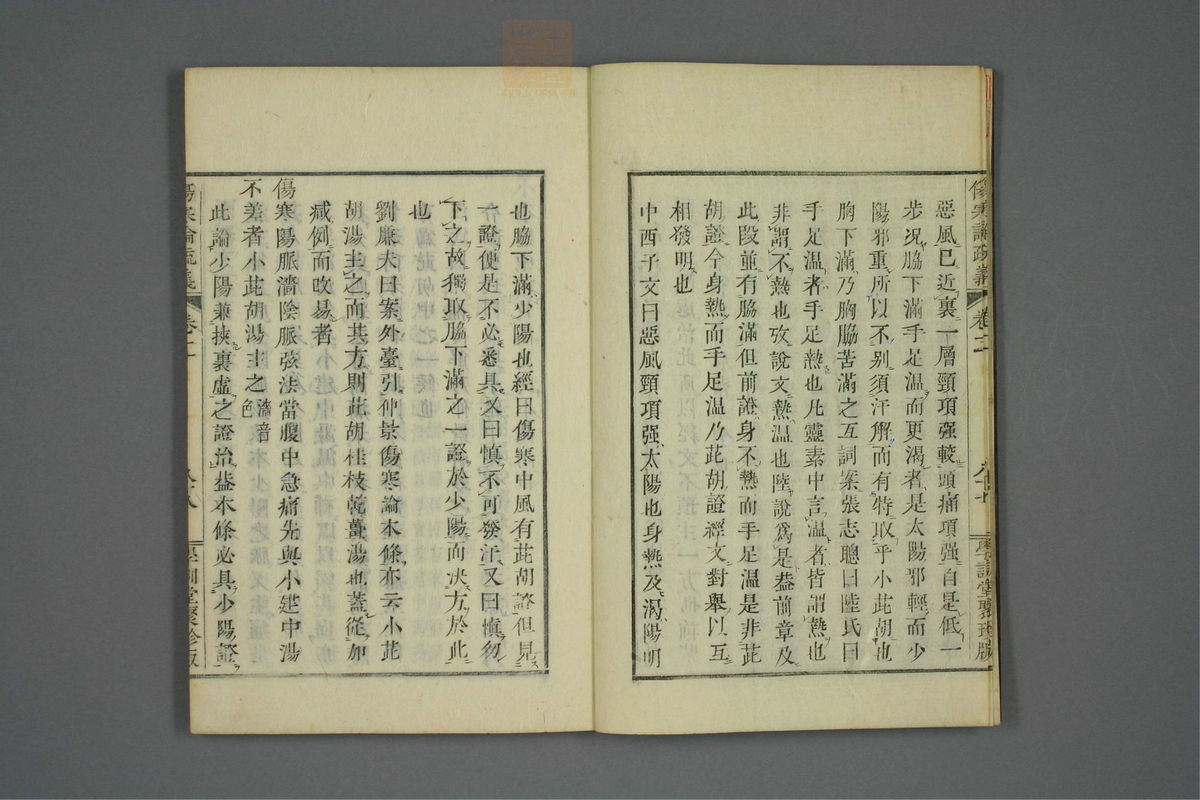 傷寒論疏義
卷二
學訓堂聚珍版
惡風已近裏一層頸項强較頭痛項强自是低一
步况脇下滿手足温而更渴者是太陽邪輕而少
陽邪重所以不别須汗解而有特取乎小茈胡也
胸下滿乃胸脇苦滿之互詞案張志聰曰陸氏曰
手足温者手足熱也凡靈素中言温者皆謂熱也
非謂不熱也攷說文熱温也陸說爲是葢前章及
此段並有脇滿但前證身不熱而手足温是非茈
胡證今身熱而手足温乃茈胡證經文對舉以互
相發明也
中西子文曰惡風頸項强太陽也身熱及渴陽明
也脇下滿少陽也經曰傷寒中風有茈胡證但見
一證便是不必悉具又曰愼不可發汗又曰愼勿
下之故獨取脇下滿之一證於少陽而决方於此
也
劉廉夫曰案外臺引仲景傷寒論本條亦云小茈
胡湯主之而其方則此胡桂枝乾薑湯也蓋從加
减例而改易者
傷寒陽脈濇陰脈弦法當腹中急痛先與小建中湯
不差者小茈胡湯主之濇音色
此論少陽兼挾裏虛之證治葢本條必具少陽證
傷寒論疏義
卷二
學訓堂聚珍版